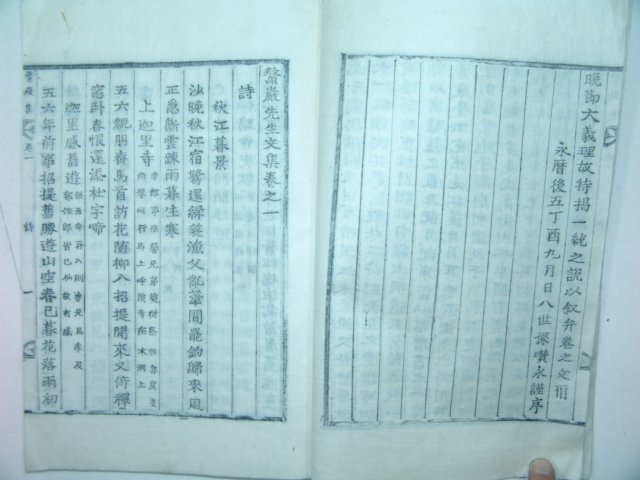 晩節大義理故特揭一統之說以叙弁卷之文爾
永曆後五丁酉九月日八世孫瓚永謹序
鰲巖先生文集卷之一
詩
秋江暮景
汕晩秋江宿鷺還綠蓑漁父亂葦間罷釣歸來風
正急斷雲疎雨暮生寒
上迦里寺
五六親朋齋馬首訪花隨柳入招提閒來又倚禪
窓臥春恨還添杜宇啼
迦里感舊遊
五六年前事招提舊勝遊山空春已暮花落雨初
卷一
詩
一